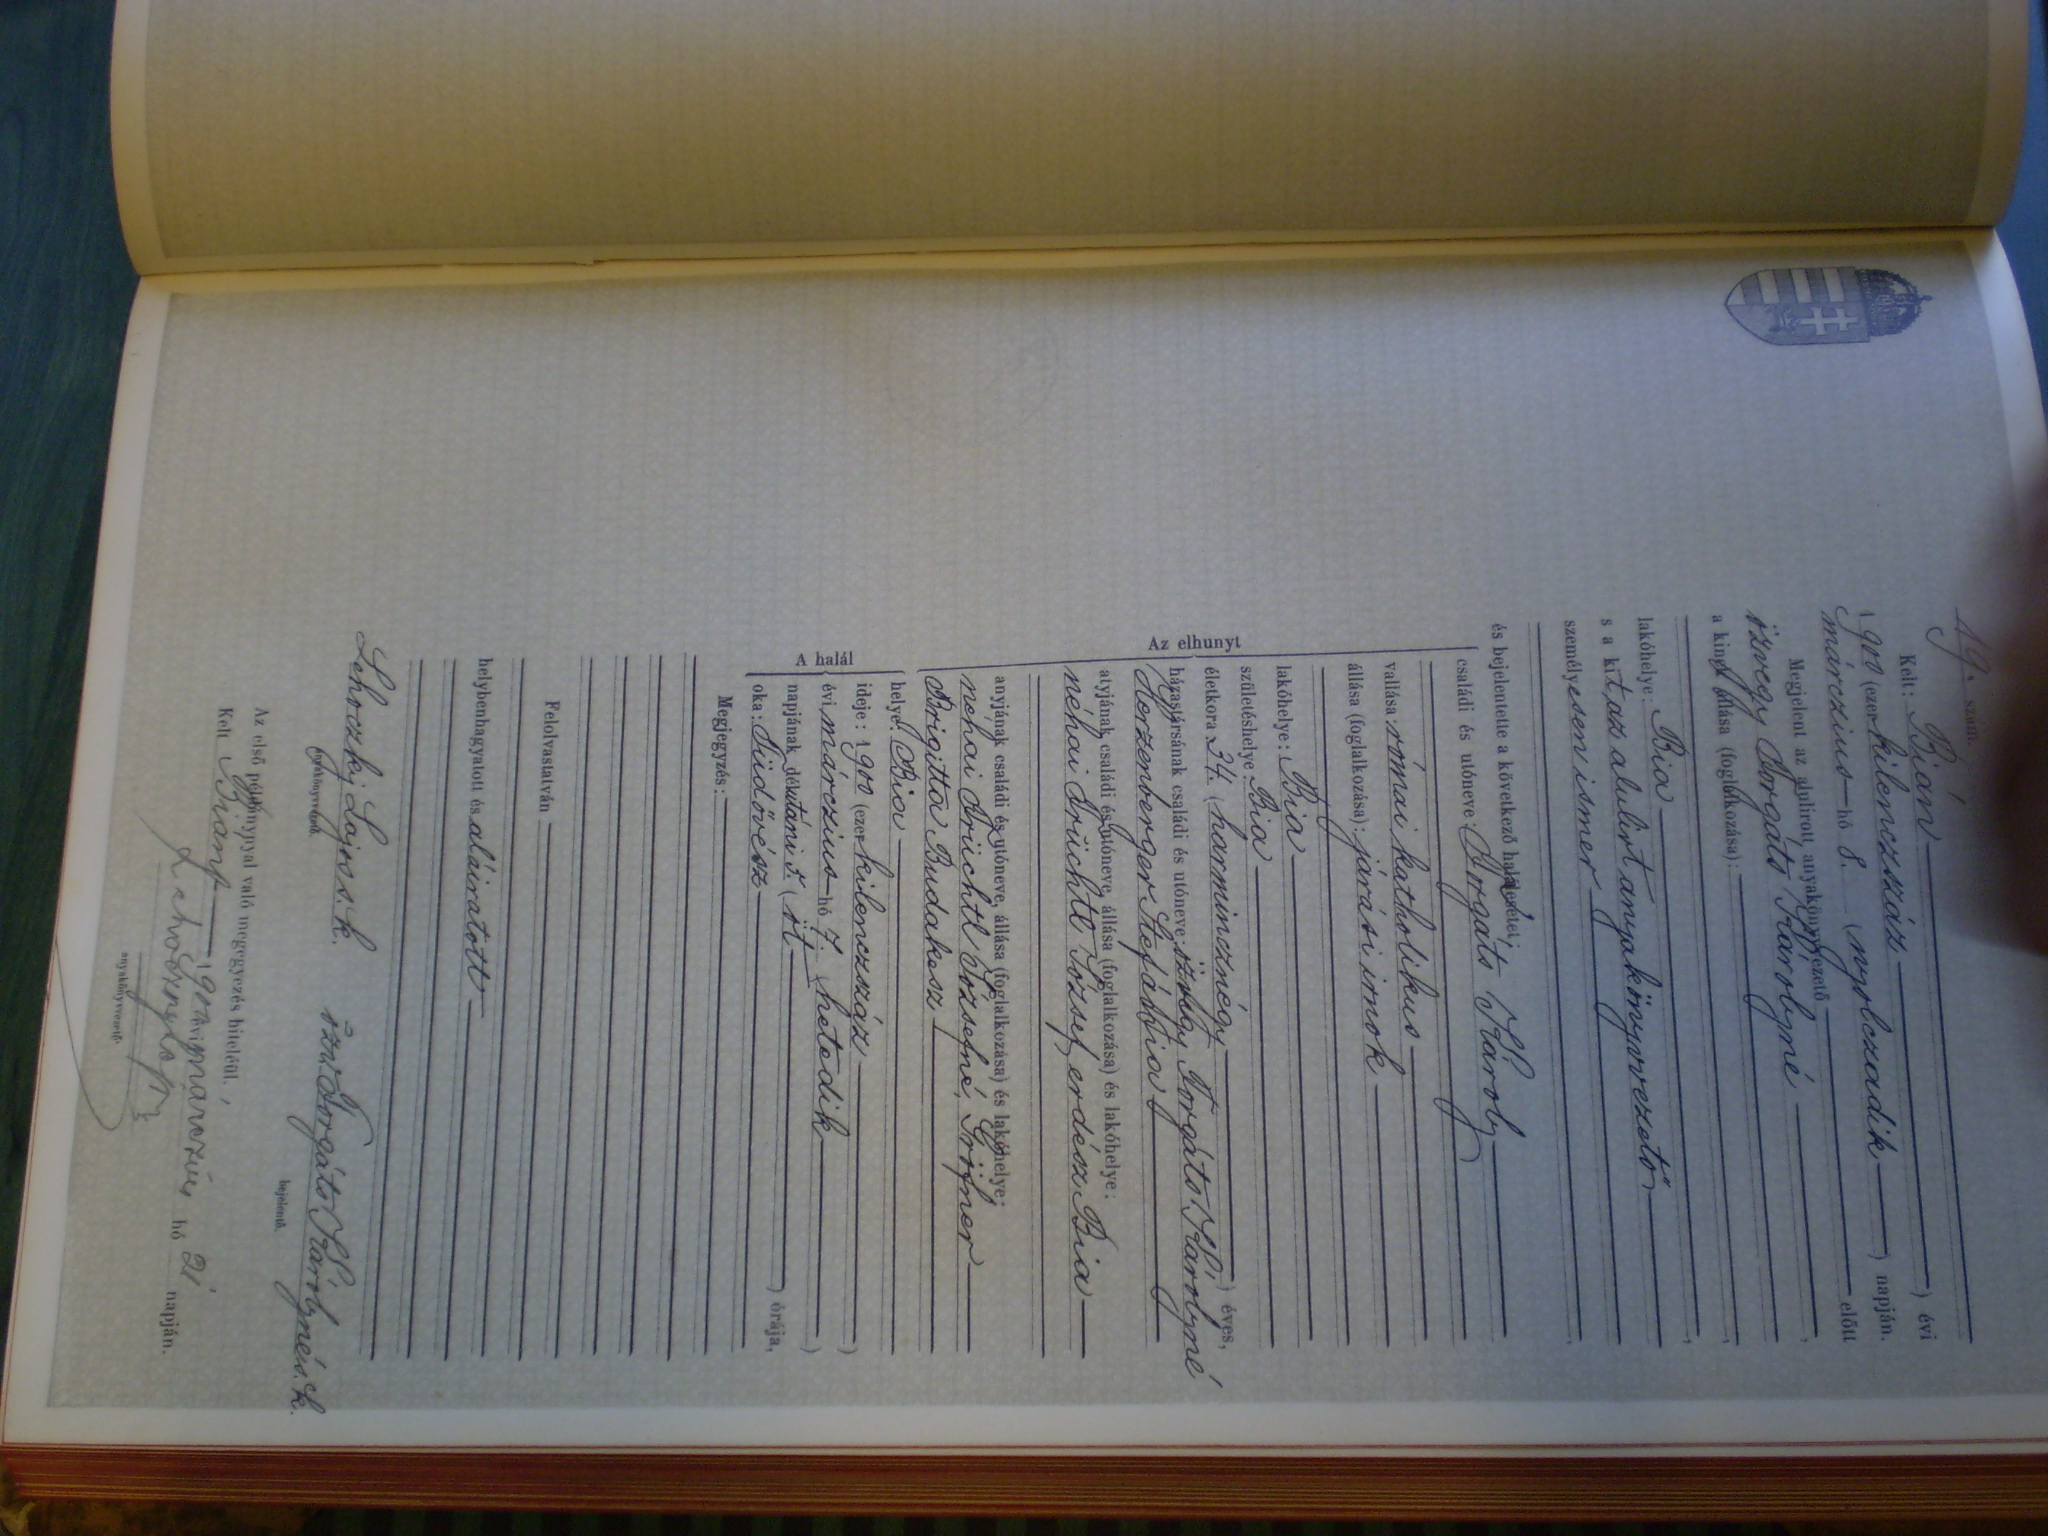 19. szám.
Kelt: Bián ) évi
1900 (ezerkilenczszáz
márczius hó 8. (nyolczadik ) napján.
Megjelent az alulirott anyakönyvezető előtt
özvegy Forgáts Károlyné ,
a kinek állása (foglalkozása):
,
lakóhelye: Bia
s a kit az alulirt anyakönyvvezető
személyesen ismer ,
és bejelentette a következő halálesetet:
Az elhunyt
családi és utóneve: Forgáts Károly
vallása: római katholikus
állása (foglalkozása): járási irnok
lakóhelye: Bia
születéshelye: Bia
életkora: 34. (harmincznégy ) éves,
házastársának családi és utóneve: özvegy Forgáts Károlyné
Herzenberger Stefánia
atyjának családi és utóneve, állása (foglalkozása) és lakóhelye:
néhai József, erdész Bia
anyjának családi és utóneve, állása (foglalkozása) és lakóhelye:
néhai Józsefné,
Brigitta Budakesz
A halál
helye: Bia
ideje: 1900 (ezerkilenczszáz )
évi márczius hó 7. (hetedik )
napjának délutáni 5. (öt ) órája,
oka: Tüdővész
Megjegyzés:
Felolvastatván
helybenhagyatott és aláiratott
Lehoczky Lajos s. k. özv Forgáts Károlyné s. k.
anyakönyvvezető. bejelentő.
Az első példánynyal való megegyezés hiteléül.
Kelt Bián 1900 évi márczius hó 21 napján.
anyakönyvvezető.